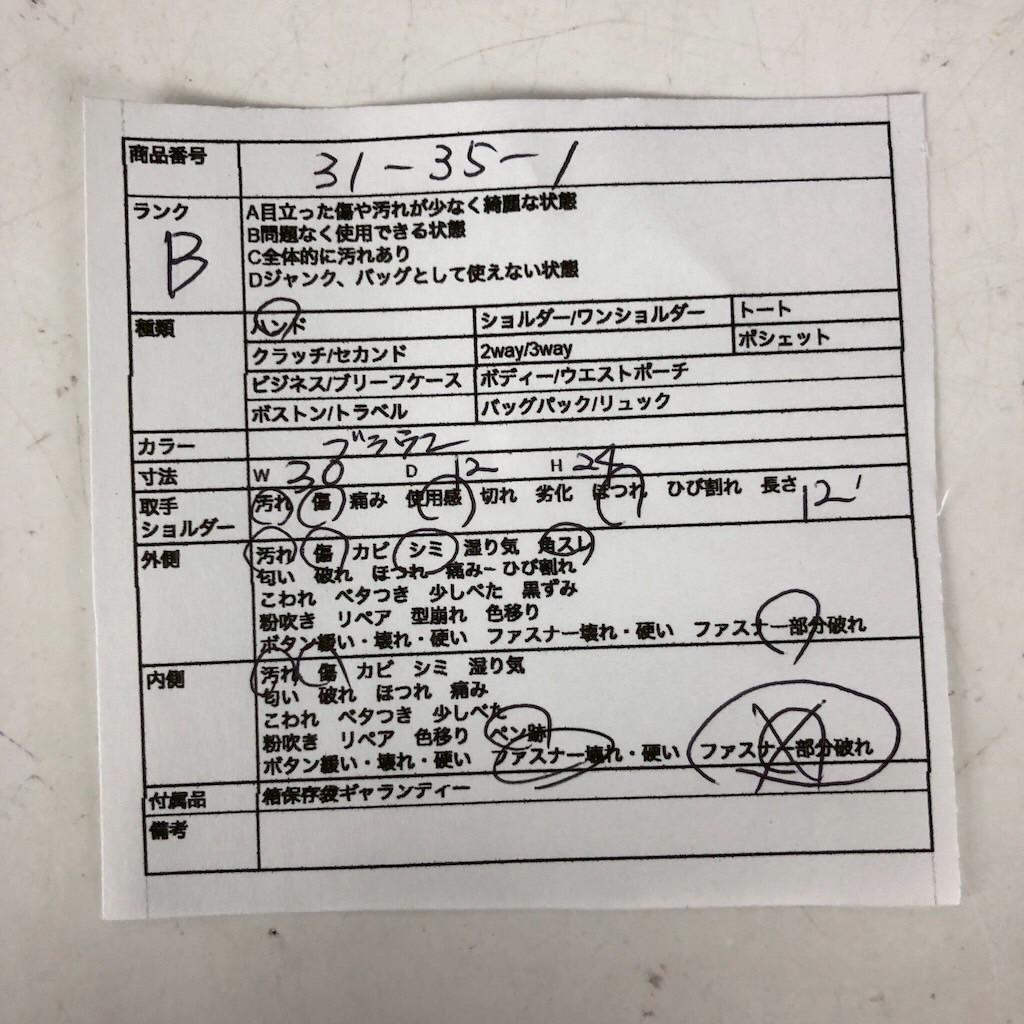 商品番号 31-35-1
ランク B
A目立った傷や汚れが少なく綺麗な状態
B問題なく使用できる状態
C全体的に汚れあり
Dジャンク、バッグとして使えない状態
種類 ハンド ショルダー/ワンショルダー トート
クラッチ/セカンド 2way/3way ポシェット
ビジネス/ブリーフケース ボディー/ウエストポーチ
ボストン/トラベル バッグパック/リュック
カラー ブラウン
寸法 W 30 D 12 H 24
取手 汚れ 傷 痛み 使用感 切れ 劣化 ほつれ ひび割れ 長さ 12
ショルダー
外側 汚れ 傷 カビ シミ 湿り気 角スレ
匂い 破れ ほつれ 痛み ひび割れ
こわれ ベタつき 少しべた 黒ずみ
粉吹き リペア 型崩れ 色移り
ボタン緩い・壊れ・硬い ファスナー壊れ・硬い ファスナー部分破れ
内側 汚れ 傷 カビ シミ 湿り気
匂い 破れ ほつれ 痛み
こわれ ベタつき 少しべた
粉吹き リペア 色移り ペン跡
ボタン緩い・壊れ・硬い ファスナー壊れ・硬い ファスナー部分破れ
付属品 箱保存袋ギャランティー
備考